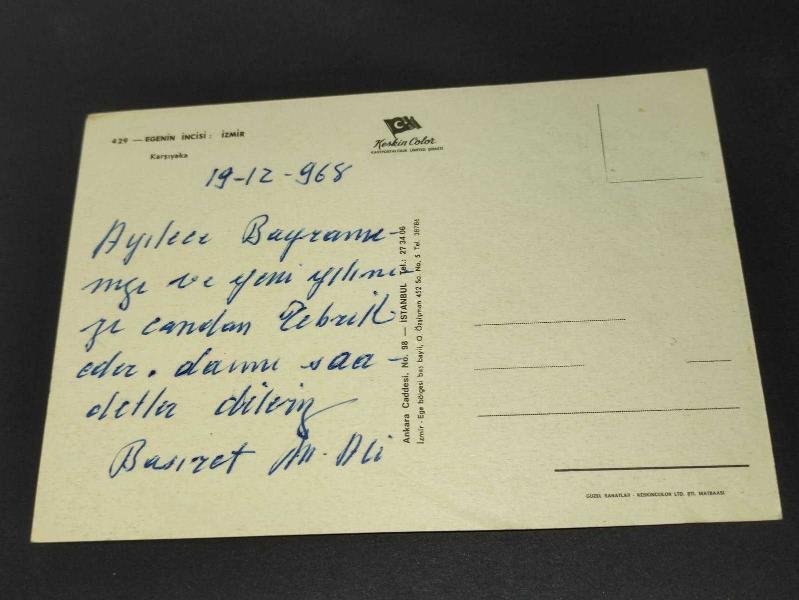 429 — EGENİN İNCİSİ : İZMİR
Karşıyaka
Keskin Color
KARTPOSTALCILIK LİMİTED ŞİRKETİ
19-12-968
Bayramı-
nızı ve yeni yılını-
zı candan Tebrik
eder. daimi saa-
detler dileriz
Basiret M. Ali
Ankara Caddesi, No. 98 — İSTANBUL Tel.: 27 34 06
İzmir - Ege bölgesi baş bayii, O. Özsişman 452 So. No. 5 Tel. 38786
GÜZEL SANATLAR - KESKİNCOLOR LTD. ŞTİ. MATBAASI